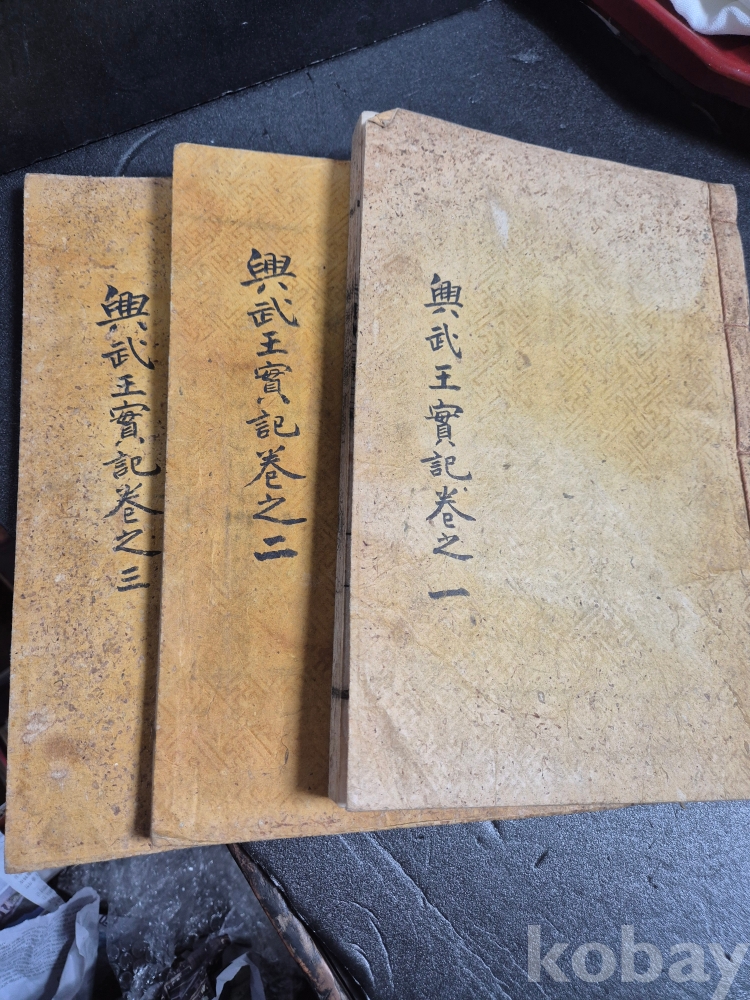 興武王實記卷之一
興武王實記卷之二
興武王實記卷之三
kobay